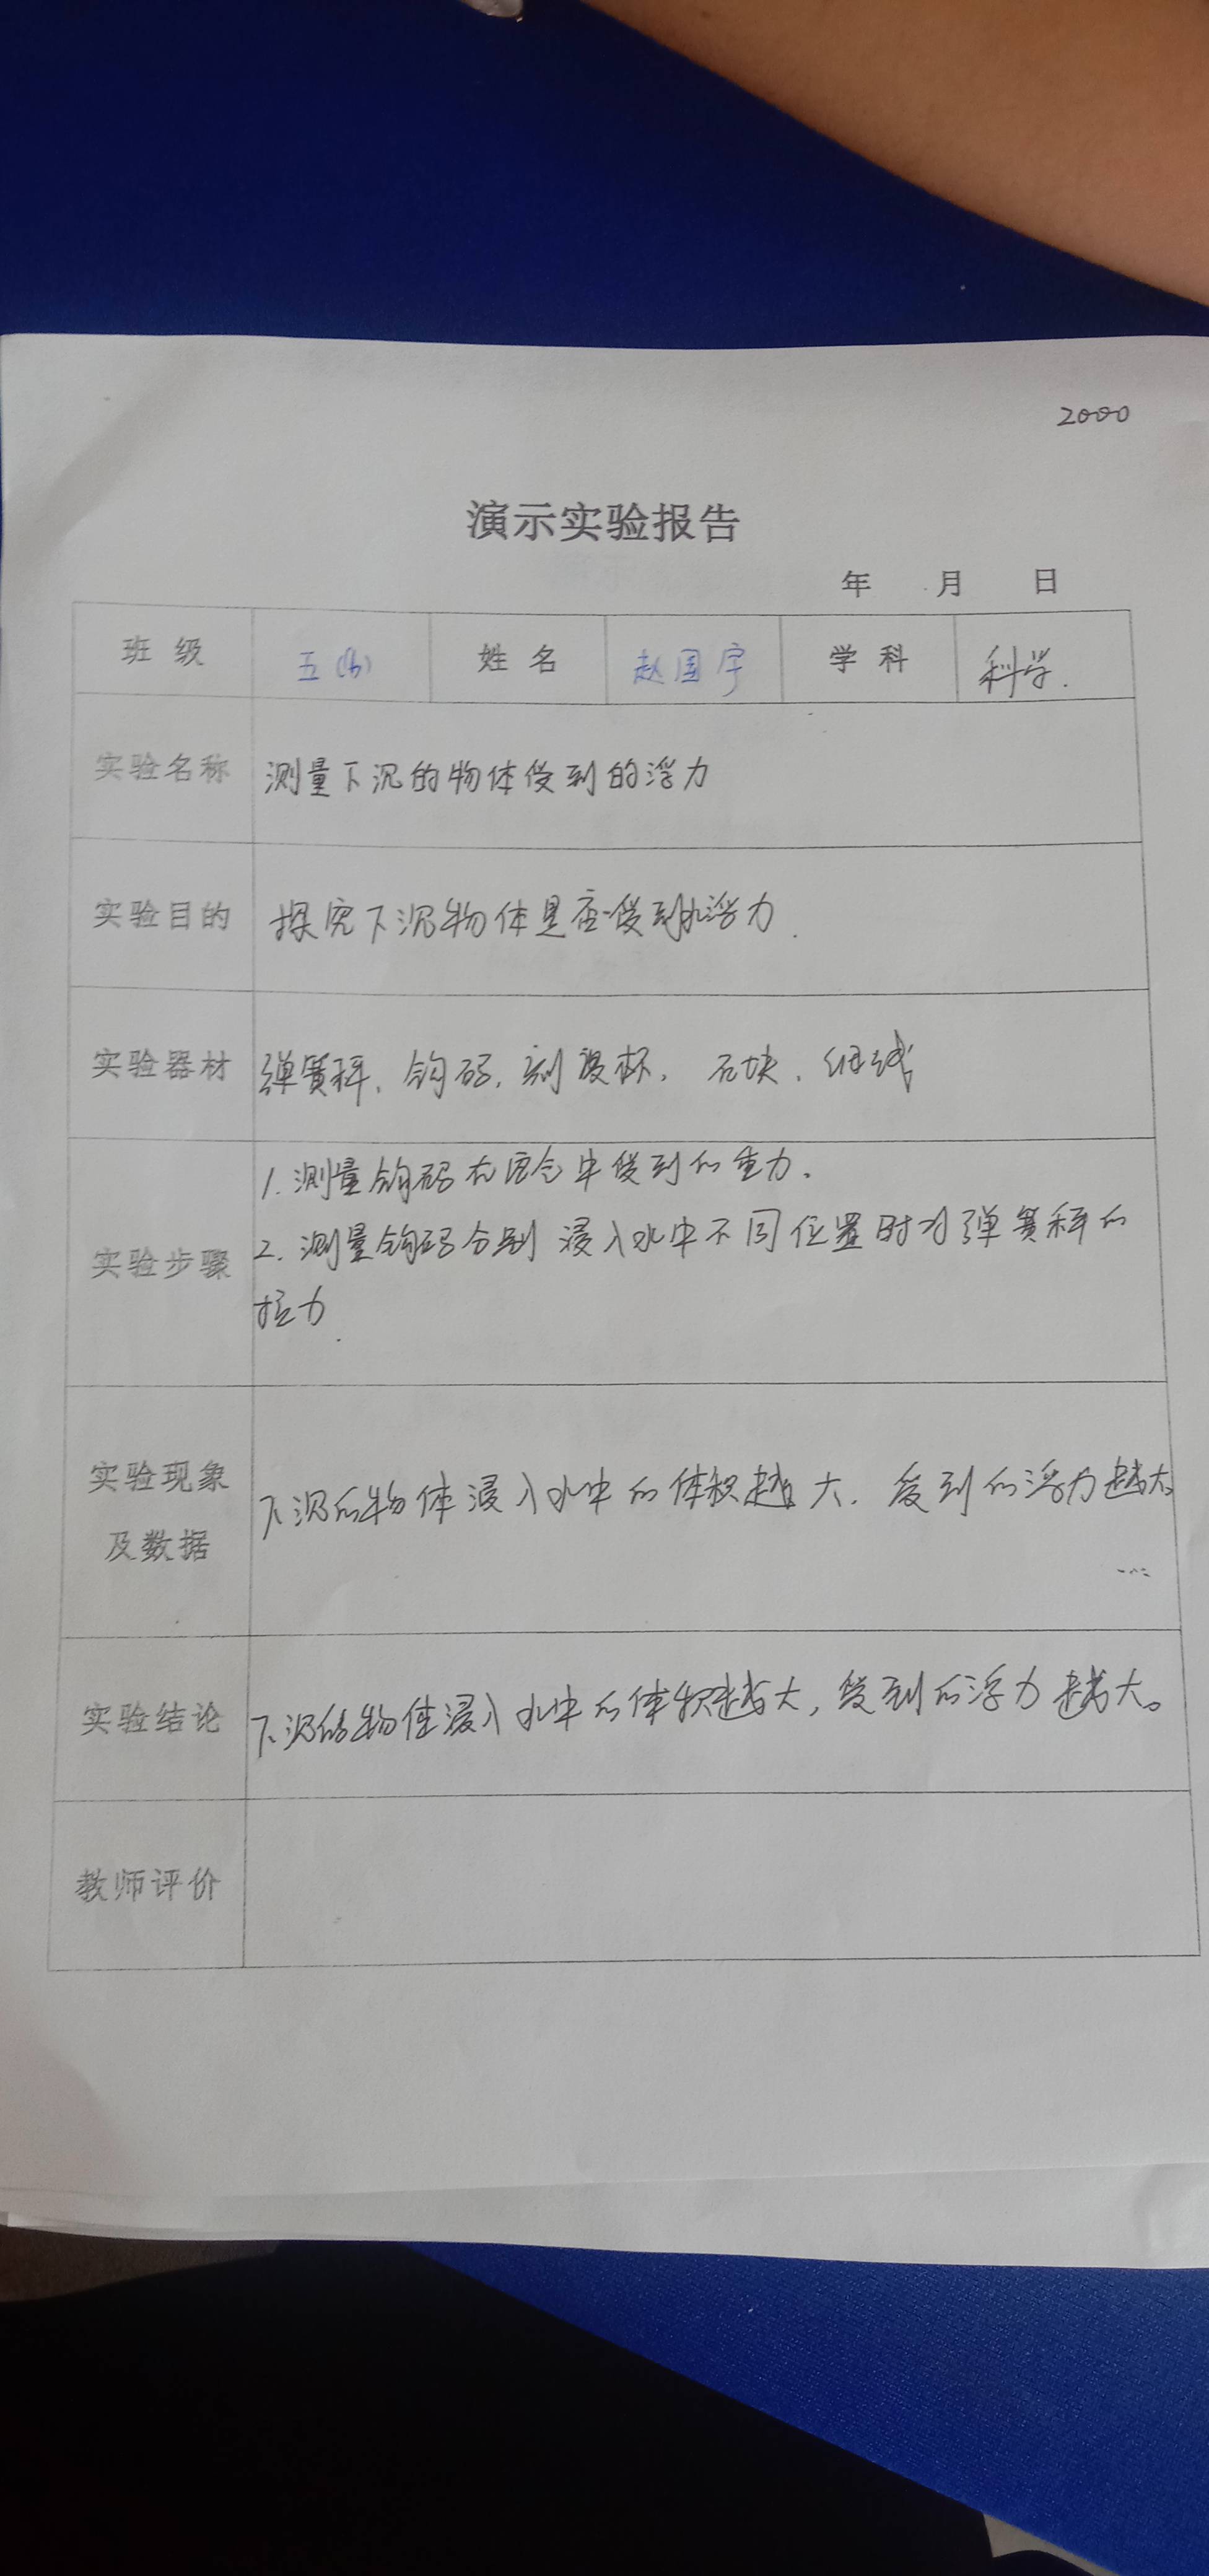 2000
演示实验报告
年 月 日
班 级 五(6) 姓 名 赵国宇 学 科 科学.
实验名称 测量下沉的物体受到的浮力
实验目的 探究下沉物体是否受到水浮力.
实验器材 弹簧秤、钩码、刻度杯、石块、细线
1.测量钩码在空气中受到的重力.
2.测量钩码分别浸入水中不同位置时对弹簧秤的
实验步骤
拉力.
实验现象
下沉的物体浸入水中的体积越大.受到的浮力越大。
及数据
实验结论 下沉的物体浸入水中的体积越大,受到的浮力越大。
教师评价